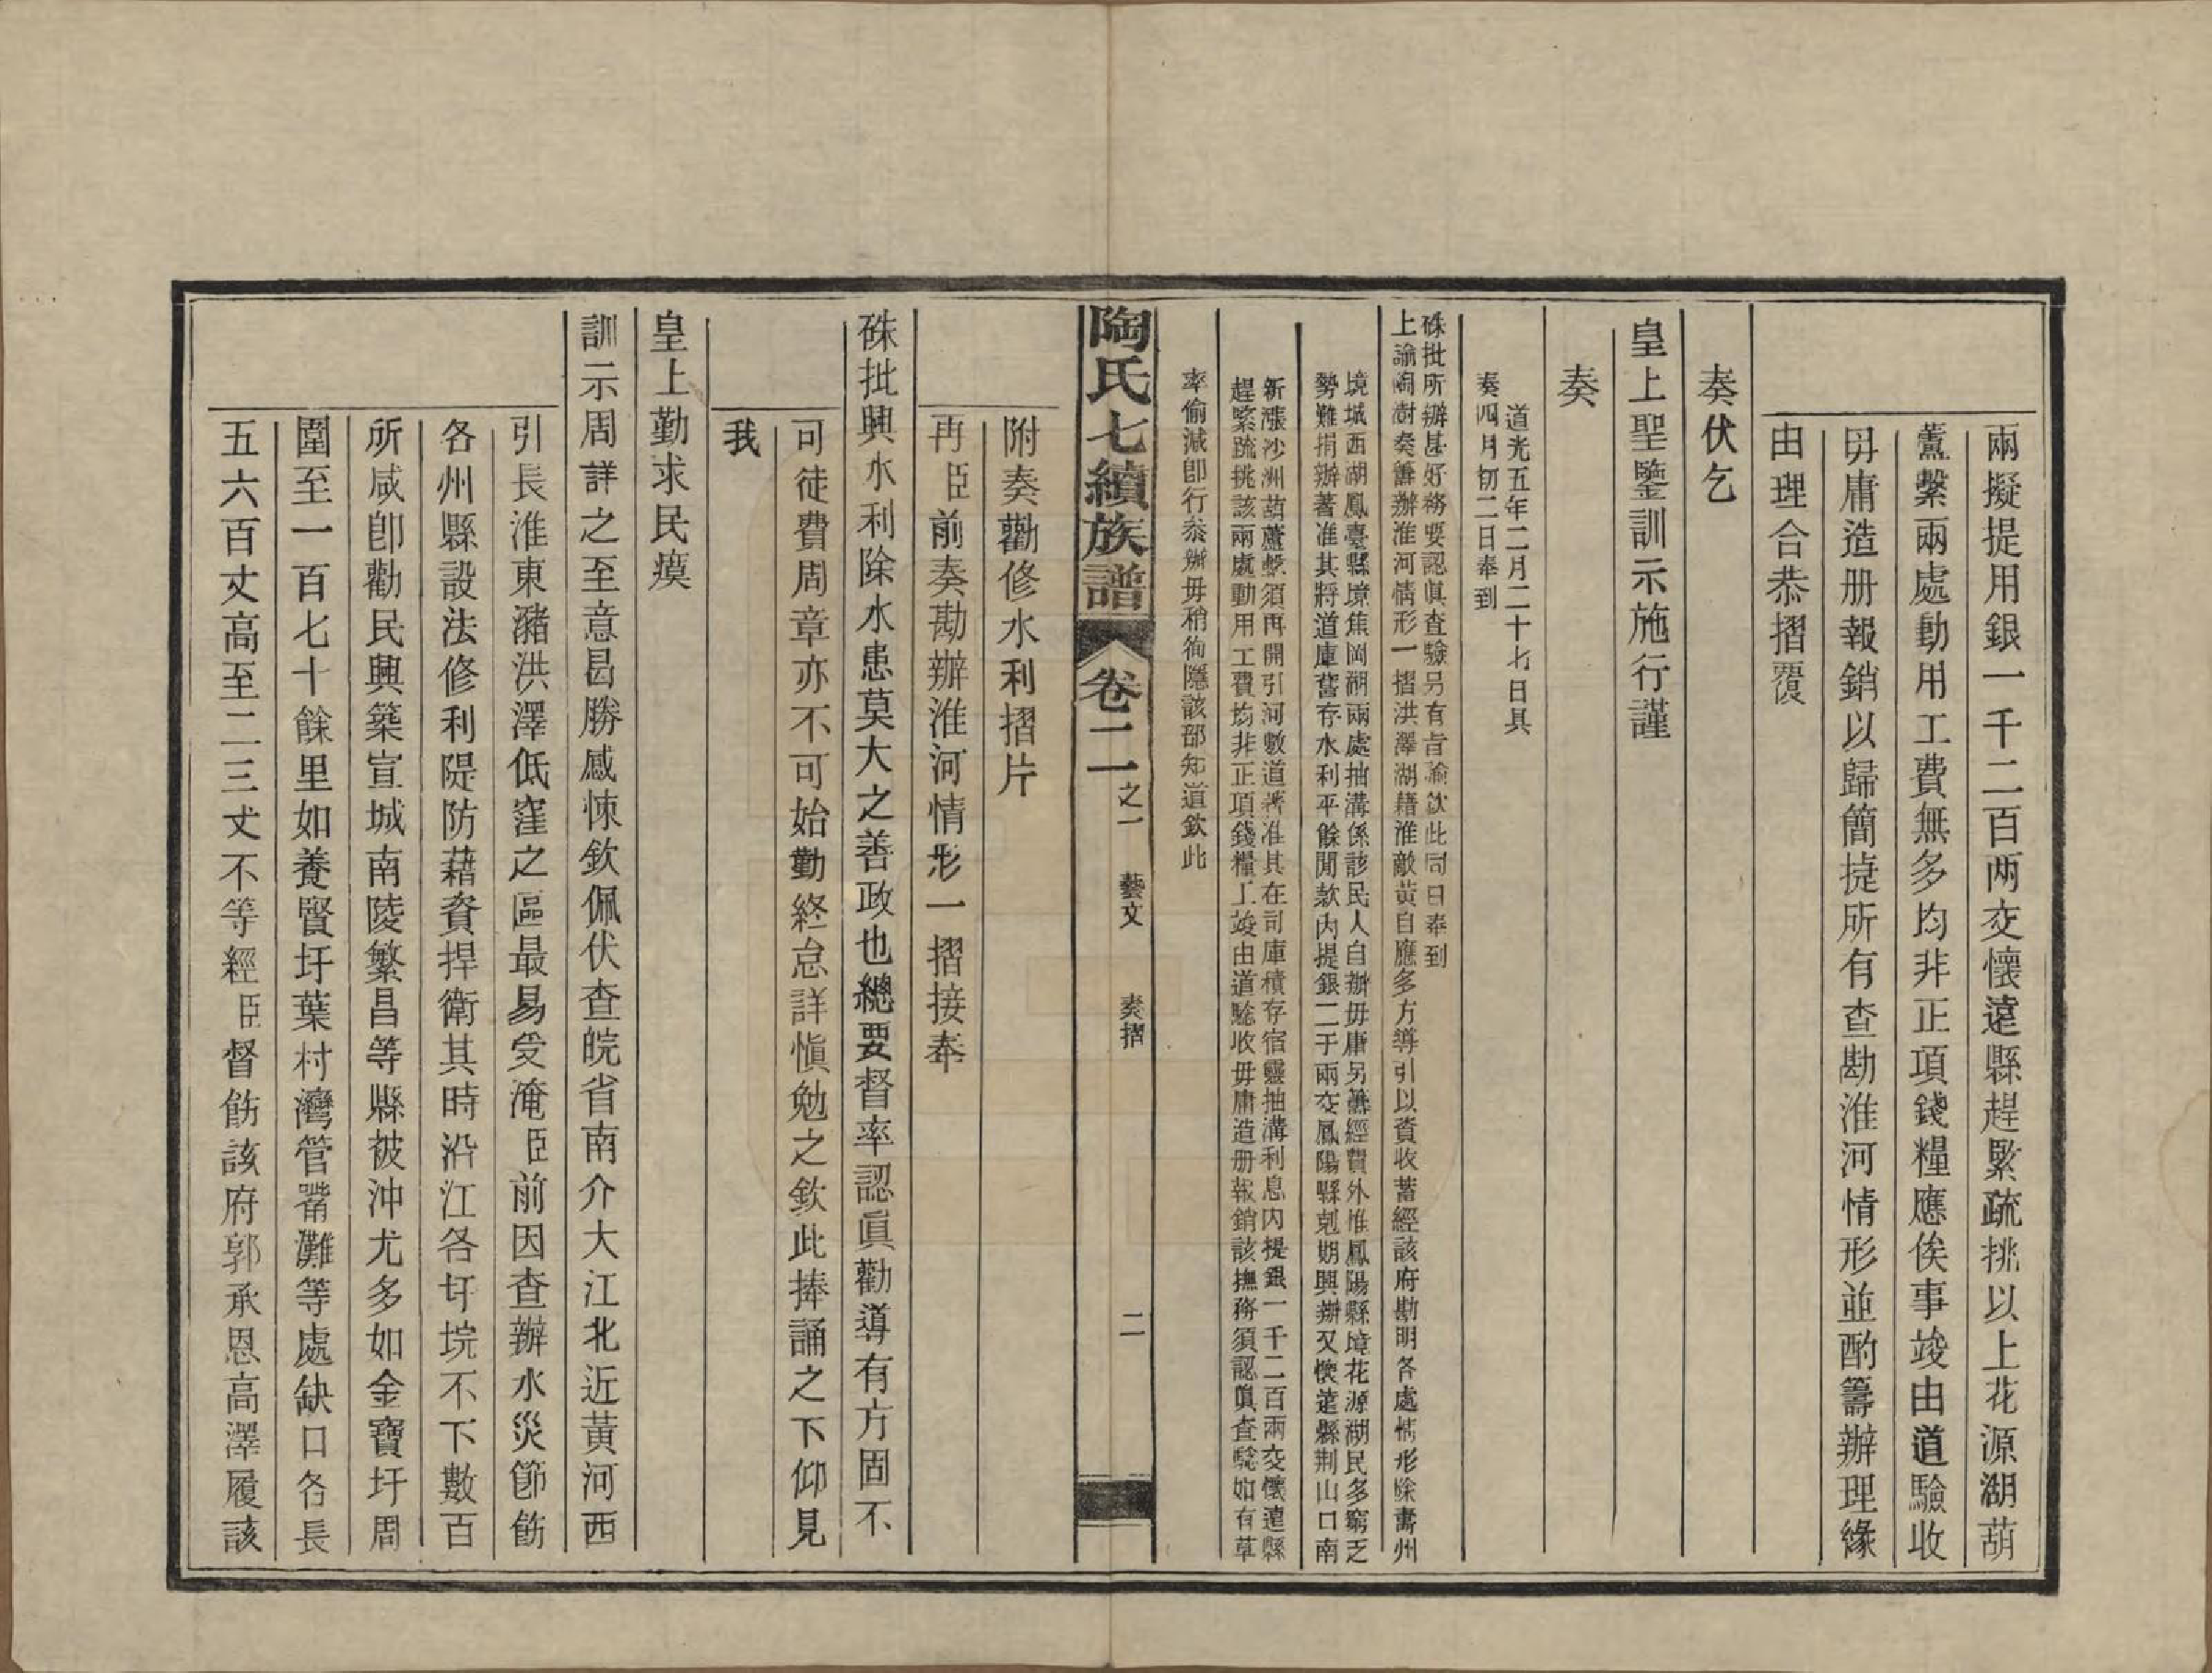 兩擬提用銀一千二百兩交懷遠縣趕緊疏挑以上花源湖葫
蘆繫兩處動用工費無多均非正項錢糧應俟事竣由道驗收
毋庸造册報銷以歸簡捷所有查勘淮河情形並酌籌辦理緣
由理合恭摺覆
奏伏乞
皇上聖鑒訓示施行謹
奏
道光五年二月二十七日具
奏四月初二日奉到
硃批所辦甚好務要認眞查驗另有旨諭欽此同日奉到
上諭陶澍奏籌辦淮河情形一摺洪澤湖藉淮敵黃自應多方導引以資收蓄經該府勘明各處情形除壽州
境城西湖鳳臺縣境焦岡湖兩處抽溝係該民人自辦毋庸另籌經費外惟鳳陽縣境花源湖民多窮乏
勢難捐辦著准其將道庫舊存水利平餘閒款內提銀二千兩交鳳陽縣剋期興辦又懷遠縣荆山口南
新漲沙洲葫蘆繫須再開引河數道著准其在司庫積存宿靈抽溝利息內提銀一千二百兩交懷遠縣
趕緊疏挑該兩處動用工費均非正項錢糧工竣由道驗收毋庸造册報銷該撫務須認眞查驗如有草
率偷減卽行叅辦毋稍徇隱該部知道欽此
陶氏七續族譜 卷二之一 藝文 奏摺 二
附奏勸修水利摺片
再臣前奏勘辦淮河情形一摺接奉
硃批興水利除水患莫大之善政也總要督率認眞勸導有方固不
可徒費周章亦不可始勤終怠詳愼勉之欽此捧誦之下仰見
我
皇上勤求民瘼
訓示周詳之至意曷勝感悚欽佩伏查皖省南介大江北近黃河西
引長淮東瀦洪澤低窪之區最易受淹臣前因查辦水災節飭
各州縣設法修利隄防藉資捍衛其時沿江各圩垸不下數百
所咸卽勸民興築宣城南陵繁昌等縣被沖尤多如金寶圩周
圍至一百七十餘里如養賢圩葉村灣管觜灘等處缺口各長
五六百丈高至二三丈不等經臣督飭該府郭承恩高澤履該